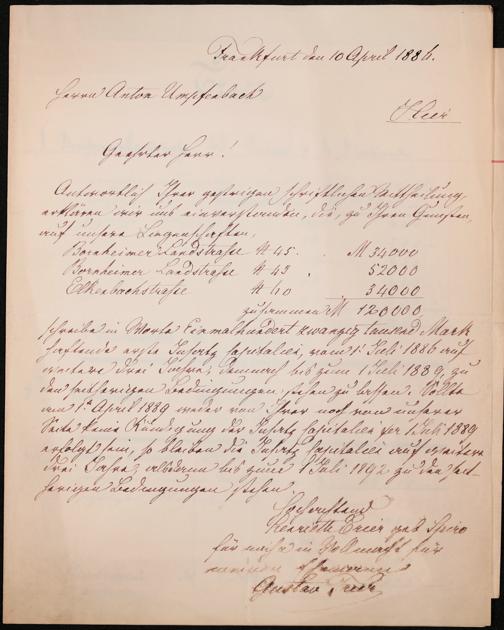 Frankfurt den 10 April 1886.
Herrn Anton Umpfenbach
Hier
Geehrter Herr!
Antwortlich Ihrer gestrigen schriftlichen Mittheilung
erklären wir uns einverstanden, die, zu Ihren Gunsten,
auf unsere Liegenschaften.
Bornheimer Landstraße # 45. M 34000
Bornheimer Landstraße # 43 . 52000
Elkenbachstraße # 60 34000
zusammen M 120000
schreibe in Worte Einmalhundert zwanzig tausend Mark
haftende erste Insatz Capitalien, vom 1 Juli 1886 auf
weitere drei Jahre, demnach bis zum 1 Juli 1889, zu
den seitherigen Bedingungen, stehen zu lassen. Sollte
am 1 April 1889 weder von Ihrer noch von unserer
Seite keine Kündigung der Insatz Capitalien per 1 Juli 1889
erfolgt sein, so bleiben die Insatz Capitalien auf weitere
drei Jahre, alsdann bis zum 1 Juli 1892 zu den seit-
herigen Bedingungen stehen.
Hochachtend
Henriette geb Spiro
für mich & in Vollmacht für
meinen Ehemann
Gustav